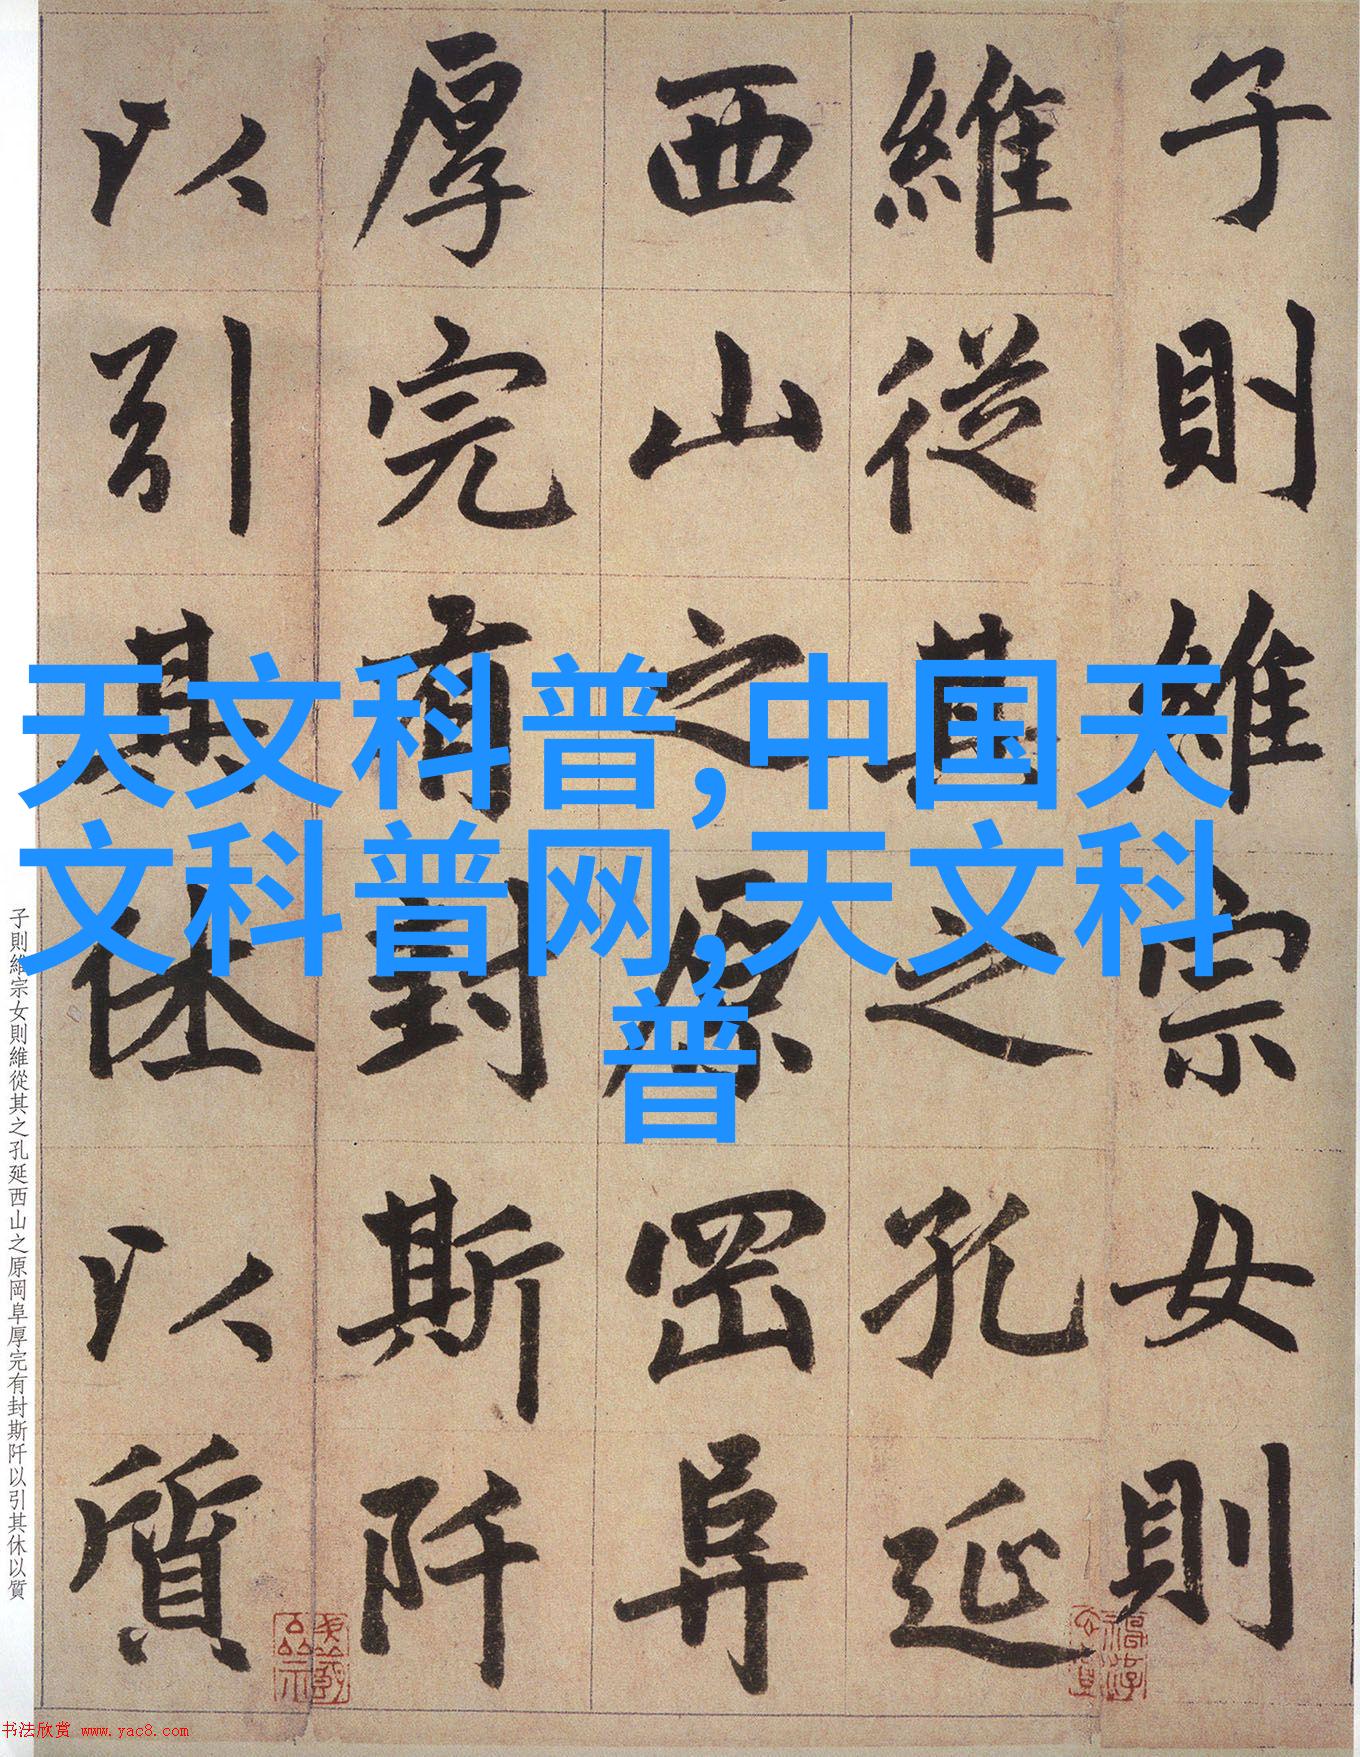 子則維宗女則
維從其之孔延
西山之原岡阜
厚完有封斯阡
以引其休以質
天文科普,中国天
文科普网,天文科
普
子則維宗女則維從其之孔延西山之原岡阜厚完有封斯阡以引其休以質
书法欣赏 www.yac8.com